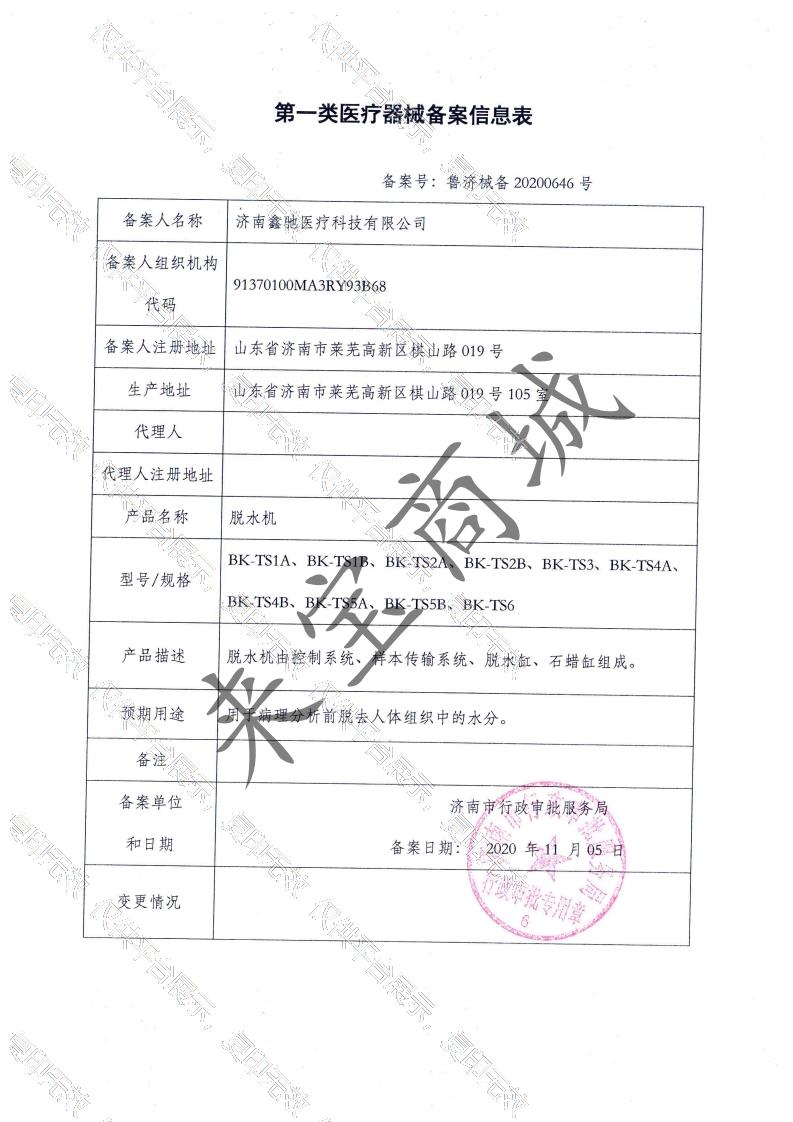 第一类医疗器械备案信息表
备案号：鲁济械备 20200646 号
备案人名称 济南鑫驰医疗科技有限公司
备案人组织机构
代码
91370100MA3RY93B68
备案人注册地址 山东省济南市莱芜高新区棋山路 019 号
生产地址 山东省济南市莱芜高新区棋山路 019 号 105 室
代理人
代理人注册地址
产品名称 脱水机
型号/规格
BK-TS1A、BK-TS1B、BK-TS2A、BK-TS2B、BK-TS3、BK-TS4A、
BK-TS4B、BK-TS5A、BK-TS5B、BK-TS6
产品描述 脱水机由控制系统、样本传输系统、脱水缸、石蜡缸组成。
预期用途 用于病理分析前脱去人体组织中的水分。
备注
备案单位
和日期
济南市行政审批服务局
备案日期： 2020 年 11 月 05 日
变更情况
济南市行政审批服务局
行政审批专用章
6
来宝商城
仅供平台展示，复印无效